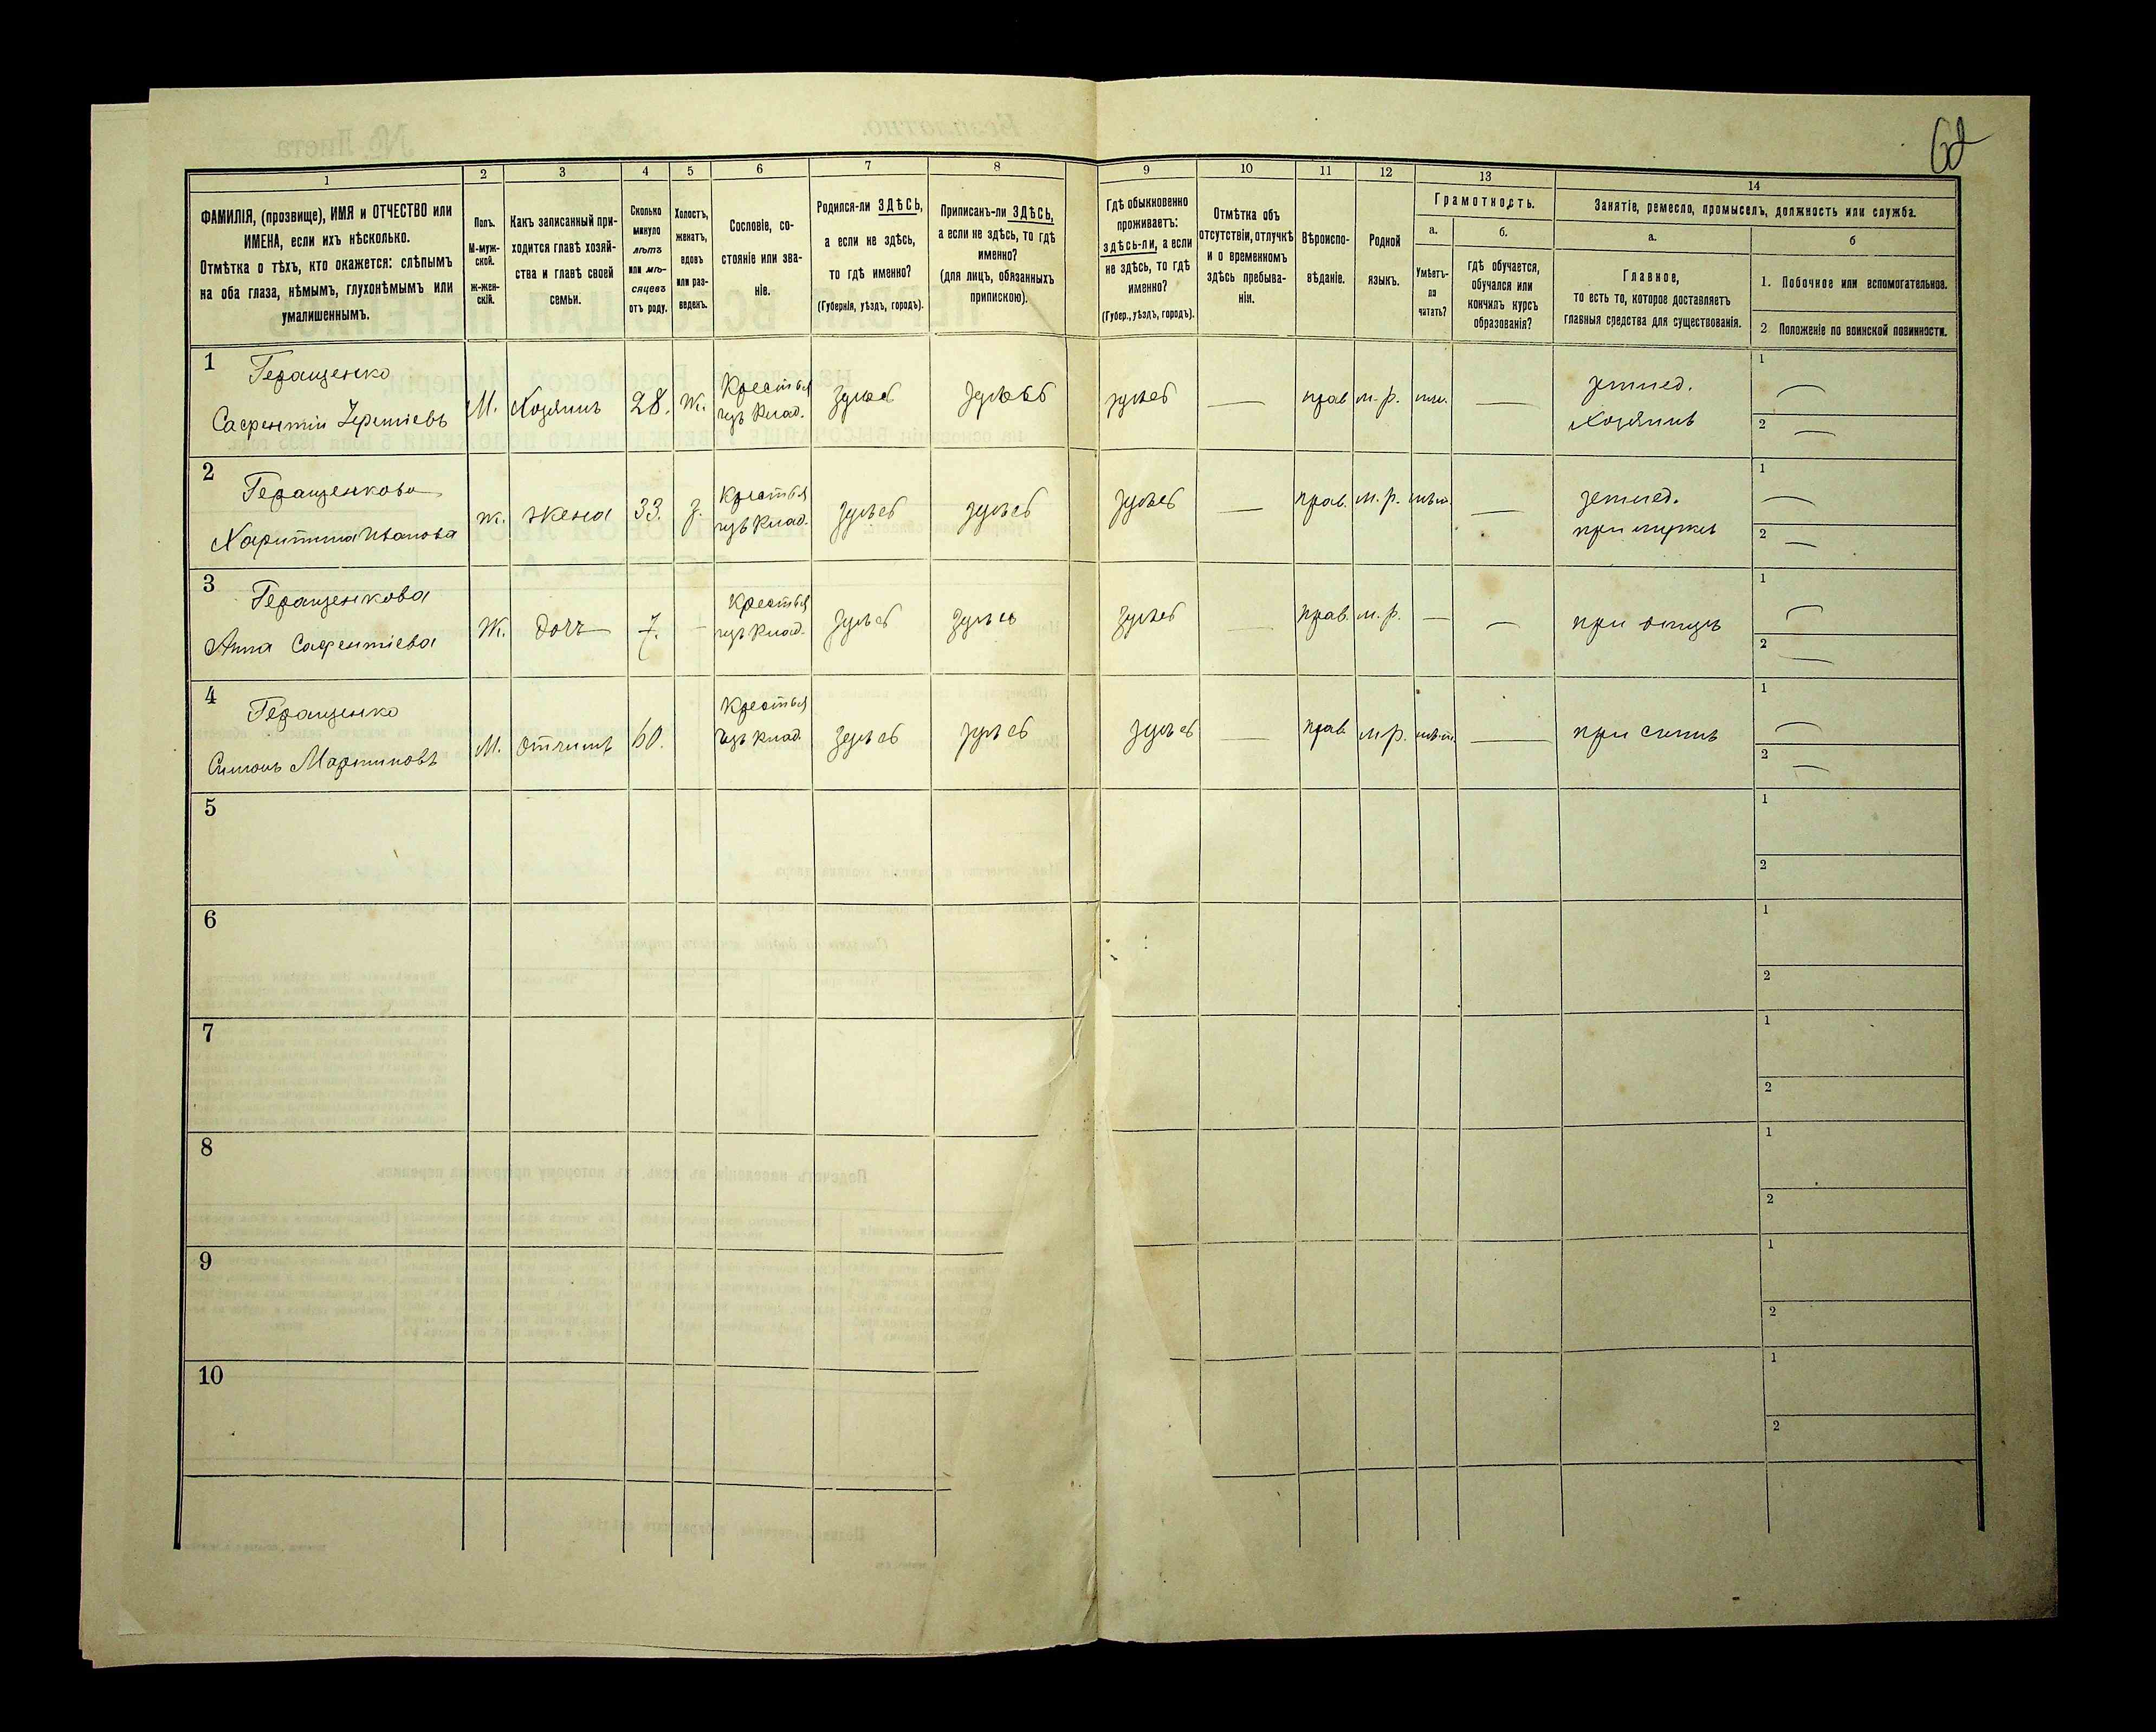 62
1
2
3
4
5
6
7
8
9
10
11
12
13
14
ФАМИЛІЯ, (прозвище), ИМЯ и ОТЧЕСТВО или
ИМЕНА, если ихъ нѣсколько.
Отмѣтка о тѣхъ, кто окажется: слѣпымъ
на оба глаза, нѣмымъ, глухонѣмымъ или
умалишеннымъ.
Полъ.
М-муж-
ской.
Ж-жен-
скій.
Какъ записанный при-
ходится главѣ хозяй-
ства и главѣ своей
семьи.
Сколько
минуло
лѣтъ
или мѣ-
сяцевъ
отъ роду.
Холостъ,
женатъ,
вдовъ
или раз-
веденъ.
Сословіе, со-
стояніе или зва-
ніе.
Родился-ли ЗДѢСЬ,
а если не здѣсь,
то гдѣ именно?
(Губернія, уѣздъ, городъ).
Приписанъ-ли ЗДѢСЬ,
а если не здѣсь, то гдѣ
именно?
(для лицъ, обязанныхъ
припискою).
Гдѣ обыкновенно
проживаетъ:
здѣсь-ли, а если
не здѣсь, то гдѣ
именно?
(Губер., уѣздъ, городъ).
Отмѣтка объ
отсутствіи, отлучкѣ
и о временномъ
здѣсь пребыва-
ніи.
Вѣроиспо-
вѣданіе.
Родной
языкъ.
Грамотность.
а.
Умѣетъ-
ли
читать?
б.
гдѣ обучается,
обучался или
кончилъ курсъ
образованія?
Занятіе, ремесло, промыселъ, должность или служба.
а.
Главное,
то есть то, которое доставляетъ
главныя средства для существованія.
б
1. Побочное или вспомогательное.
2 Положеніе по воинской повинности.
1
Геращенко
М.
Хозяинъ
28.
Ж.
Крестья
изъ влад.
здѣсь
здѣсь
здѣсь
прав
м. р.
землед.
хозяинъ
1
2
2
Геращенкова
Харитина Иванова
ж.
жена
33.
з.
Крестья
изъ влад.
здѣсь
здѣсь
здѣсь
прав.
м. р.
землед.
при мужѣ
1
2
3
Геращенкова
Анна
Ж.
дочь
7.
Крестья
изъ влад.
здѣсь
здѣсь
здѣсь
прав.
м. р.
при отцѣ
1
2
4
Геращенко
Симонъ Мартиновъ
М.
отчимъ
60.
Крестья
изъ влад.
здѣсь
здѣсь
здѣсь
прав
м р.
при сынѣ
1
2
5
1
2
6
1
2
7
1
2
8
1
2
9
1
2
10
1
2